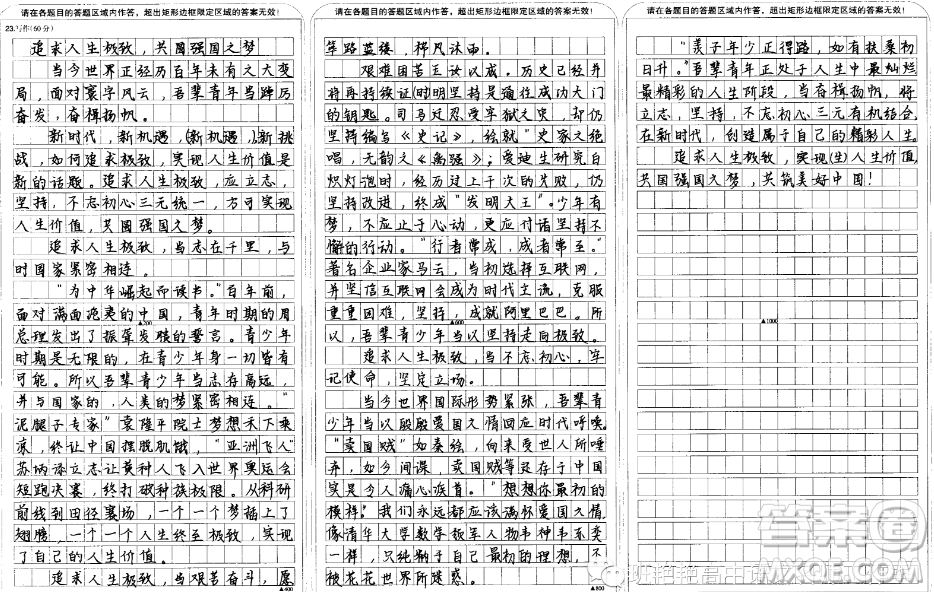 请在各题目的答题区域内作答，超出矩形边框限定区域的答案无效！
23.写作(60分)
追求人生极致，共圆强国之梦
当今世界正经历百年未有之大变
局，面对寰宇风云，吾辈青年当踔厉
奋发，奋楫扬帆。
新时代，新机遇，(新机遇)，新挑
战，如何追求极致，实现人生价值是
新的话题。追求人生极致，应立志，
坚持，不忘初心三元统一，方可实现
人生价值，共圆强国之梦。
追求人生极致，当志在千里，与
时国家紧密相连。
“为中华崛起而读书。”百年前，
面对满面疮夷的中国，青年时期的周
▲200
总理发出了振聋发聩的誓言。青少年
时期是无限的，在青少年身一切皆有
可能。所以吾辈青少年当志存高远，
并与国家的，人类的梦紧密相连。“
泥腿子专家”袁隆平院士梦想禾下乘
凉，终让中国摆脱饥饿，“亚洲飞人”
苏炳添立志让黄种人飞入世界奥运会
短跑决赛，终打破种族极限。从科研
前线到田径赛场，一个一个梦插上了
翅膀，一个一个人生终至极致，实现
了自己的人生价值。
追求人生极致，当艰苦奋斗，愿
▲400
请在各题目的答题区域内作答，超出矩形边框限定区域的答案无效！
筚路蓝缕，栉风沐雨。
艰难困苦玉汝以成。历史已经并
将再持续证(时)明坚持是通往成功大门
的钥匙。司马迁忍受牢狱之灾，却仍
坚持编写《史记》，绘就“史家之绝
唱，无韵之《离骚》；爱迪生研究白
炽灯泡时，经历过上千次的失败，仍
坚持改进，终成“发明大王”。少年有
梦，不应止于心动，更应付诸坚持不
懈的行动。“行者常成，成者常至。”
著名企业家马云，当初选择互联网，
并坚信互联网会成为时代主流，克服
重重困难，坚持，成就阿里巴巴。所
▲600
以，吾辈青少年当以坚持走向极致。
追求人生极致，当不忘初心，牢
记使命，坚定立场。
当今世界国际形势紧张，吾辈青
少年当以殷殷爱国之情回应时代呼唤。
“卖国贼”如秦绘，向来受世人所唾
弃，如今间谍，卖国贼等还存于中国
实是令人痛心疾首。“想想你最初的
模样。”我们永远都应该满怀爱国之情，
像清华大学数学领军人物韦神韦东奕
一样，只纯粹于自己最初的理想，不
被花花世界所迷惑。
▲800
请在各题目的答题区域内作答，超出矩形边框限定区域的答案无效！
“羡子年少正得路，如有扶桑初
日升。”吾辈青年正处于人生中最灿烂
最精彩的人生阶段，当奋楫扬帆，将
立志，坚持，不忘初心三元有机结合，
在新时代，创造属于自己的精彩人生。
追求人生极致，实现(生)人生价值，
共圆强国之梦，共筑美好中国！
▲1000
答案圈
MXQE.COM